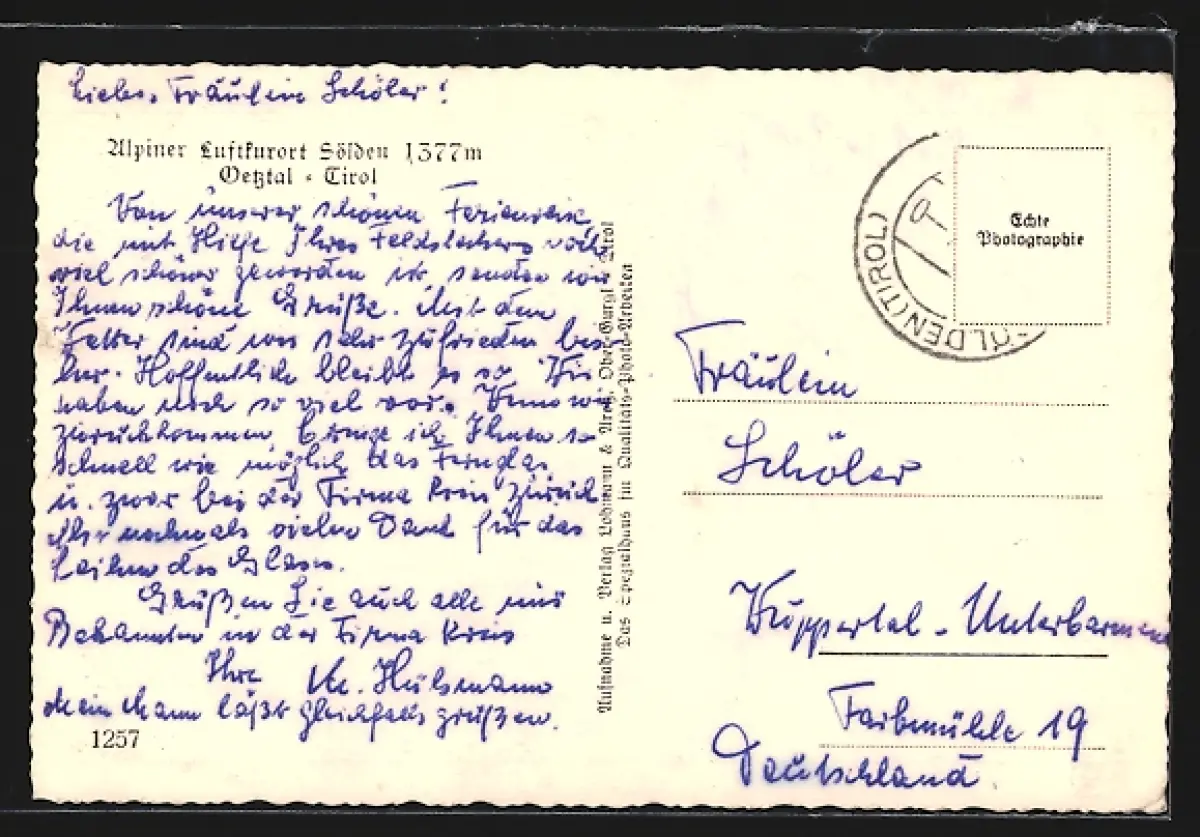 Liebes Fräulein Schöler!
Alpiner Luftkurort Sölden 1377m
Oetztal - Tirol
Von unserer schönen Ferienreise,
die mit Hilfe Ihres Feldstechers noch
viel schöner geworden ist senden wir
Ihnen schöne Grüße. Mit dem
Wetter sind wir sehr zufrieden bis-
her. Hoffentlich bleibt es so. Wir
haben noch so viel vor. Wenn wir
zurückkommen, bringe ich Ihnen so
schnell wie möglich das Fernglas
u. zwar bei der Firma Kreis zurück
Also nochmals vielen Dank für das
Leihen des Glases.
Grüßen Sie auch alle mir
Bekannten in der Firma Kreis
Ihre M. Hülsmann
Mein Mann läßt gleichfalls grüßen.
1257
Aufnahme u. Verlag Lohmann & Ober-Gurgl Tirol
Das Spezialhaus für Qualitäts-Photo-Arbeiten
SÖLDEN (TIROL)
Echte
Photographie
Fräulein
Schöler
Wuppertal - Unterbarmen
Farbmühle 19
Deutschland